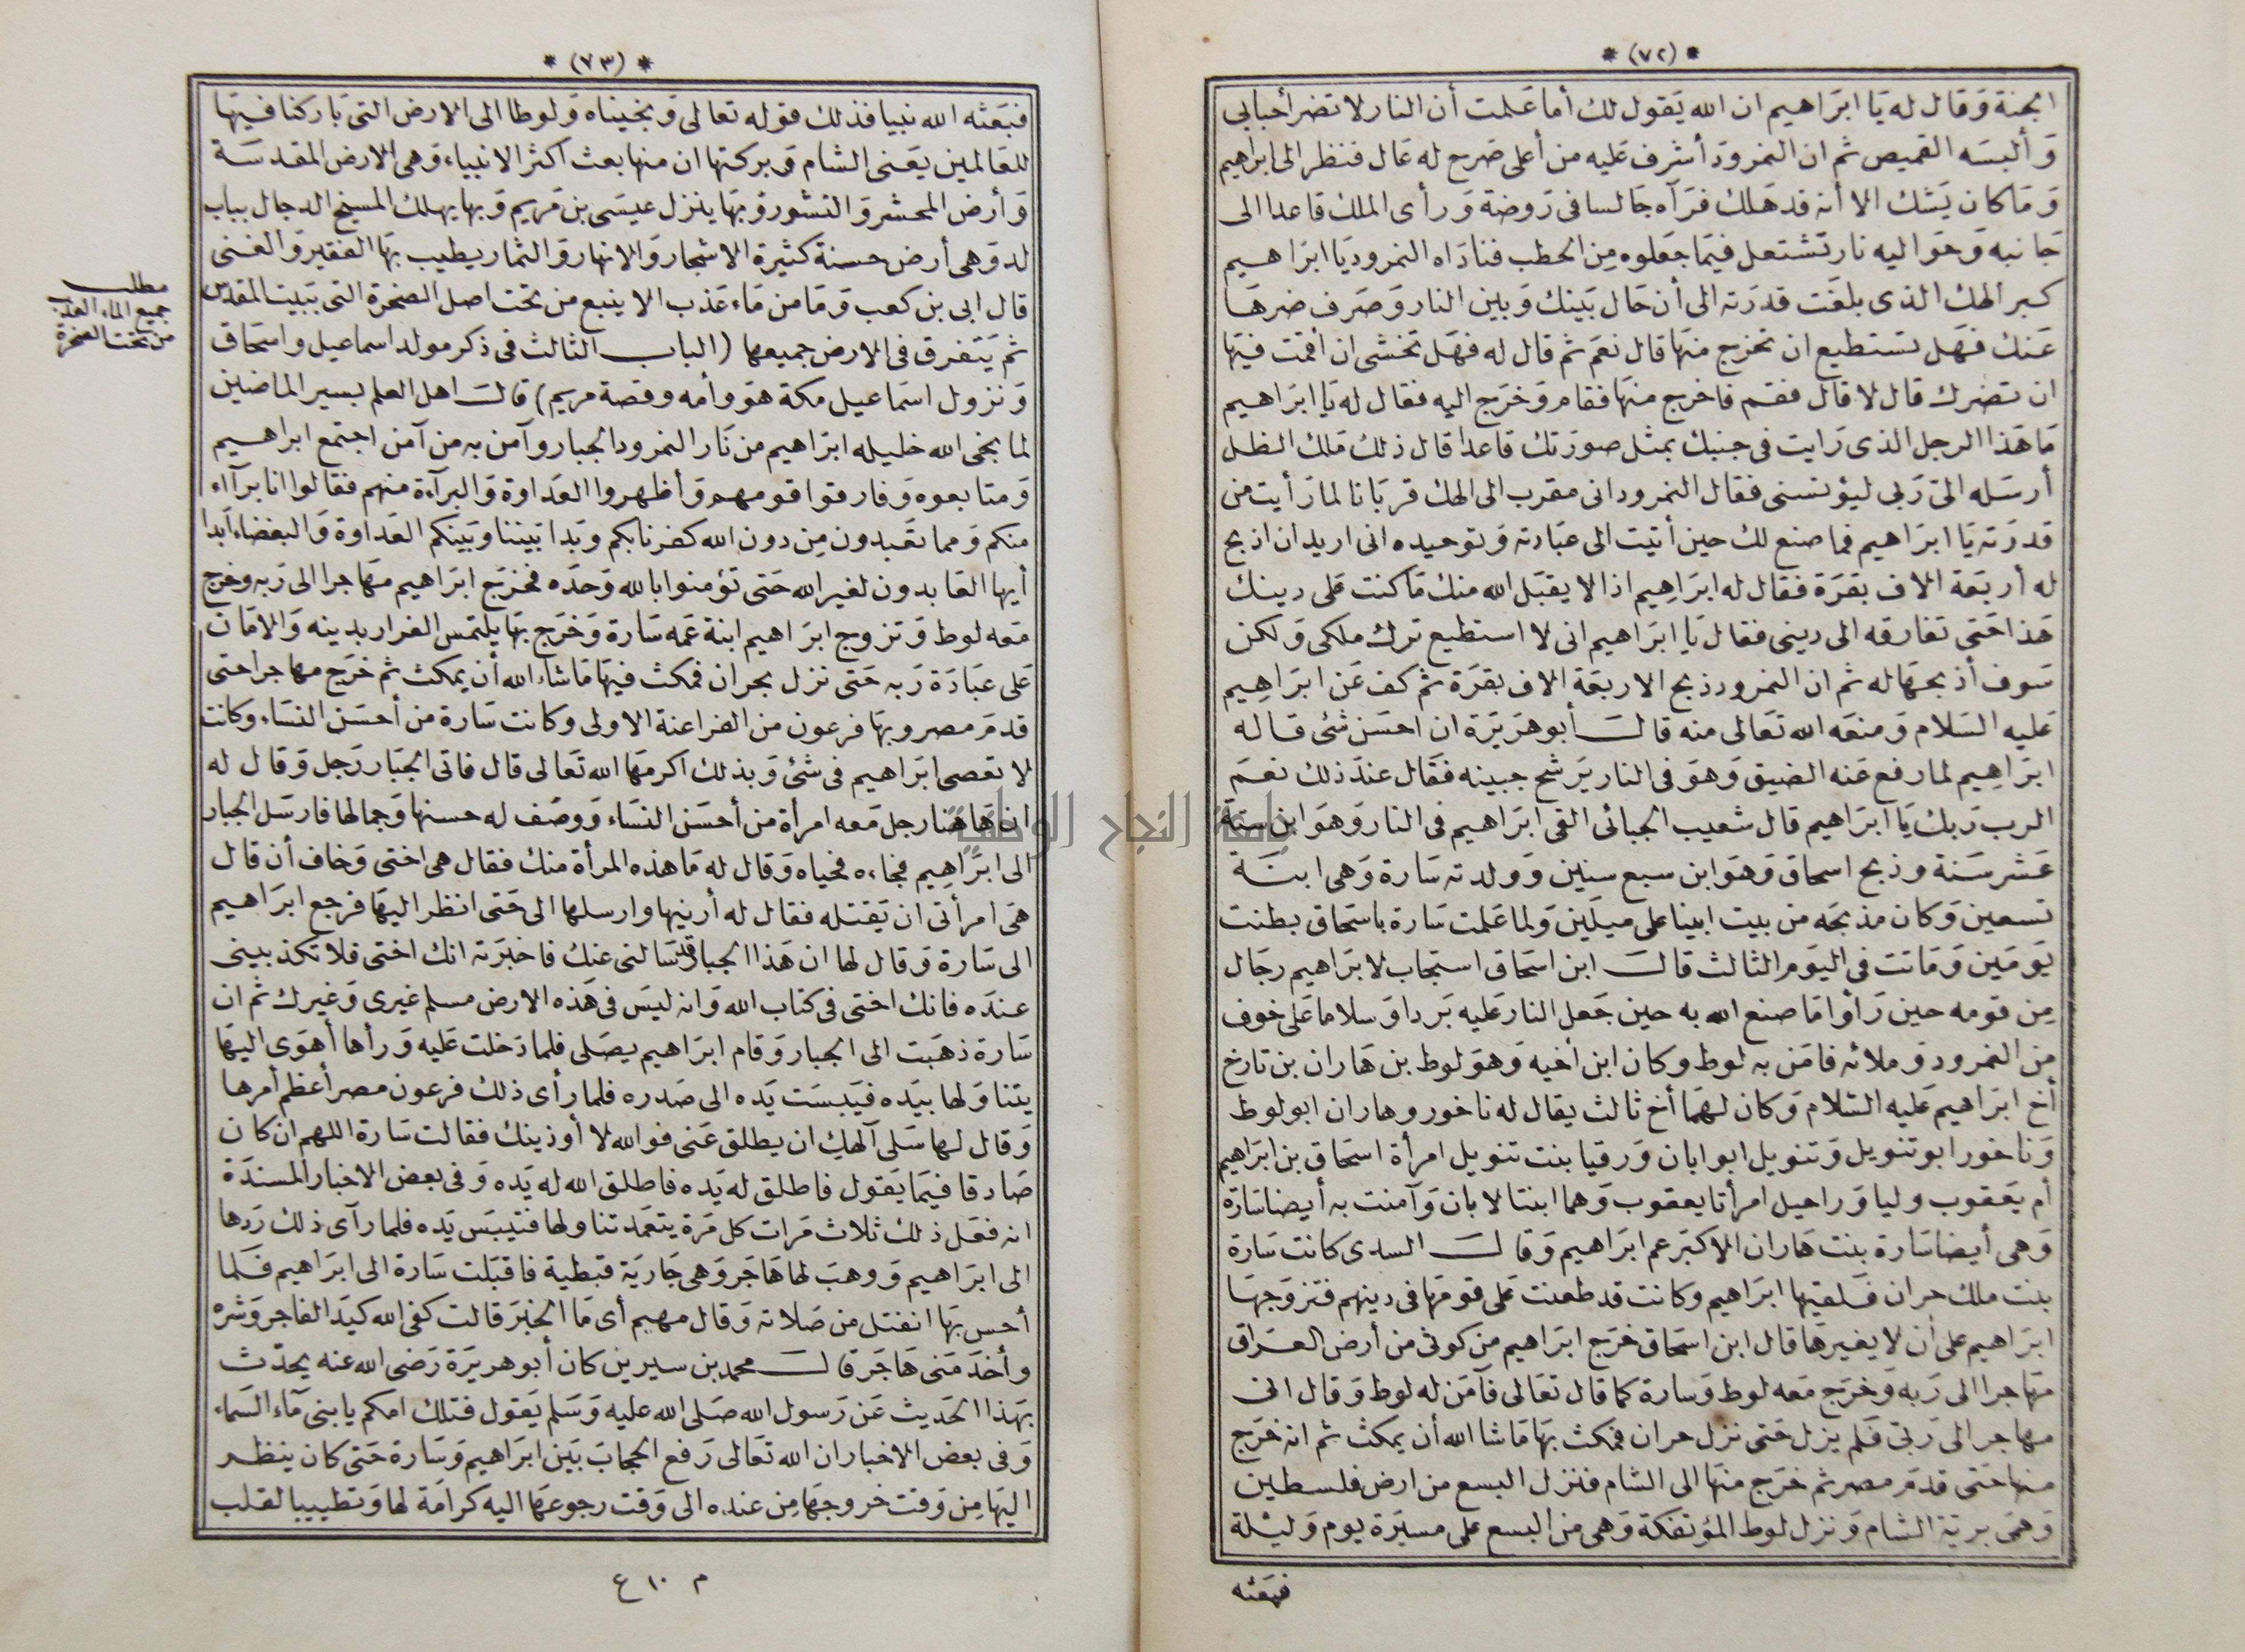 * (٧٢) *
الجنة وَقال له يَا ابرَاهيم ان الله يَقول لك أما عَلمت أن النار لا تضر أحبابي
وَألبسَه القميص ثم ان النمرود أشرف عَليه من أعلى صَرح له عَال فنظر الى ابراهيم
وَمَا كان يَشك الا أنه قد هَلك فرَآه جَالسا في رَوضة وَرأى الملك قاعدا الى
جَانبه وَحَواليه نار تشتعل فيمَا جمَعلوه مِن الحطب فنادَاه النمرود يَا ابرَاهيم
كبر الهك الذى بلغَت قدرَته الى أن حَال بَينك وَبين النار وَصَرف ضرهَا
عَنك فهَل تستطيع ان تخرج منهَا قال نعَم ثم قال له فهَل تخشى ان أقمت فيَها
ان تضرك قال لا قال فقم فاخرج منهَا فقام وَخرَج اليه فقال له يَا ابرَاهيم
مَا هَذا الرجل الذى رَايت فى جنبك بمثل صورَتك قاعدا قال ذلك مَلك الظل
أرسَله الىّ رَبى ليؤنسنى فقال النمرود انى مقرب الى الهك قربَانا لما رَأيت من
قدرَته يَا ابرَاهيم فما صنع لك حين أتيت الى عبَادته وَتوحيده انى اريد ان اذبح
له أربَعة الاف بقرَة فقال له ابرَاهِيم اذا لا يقبَل الله منك مَا كنت عَلى دينك
هَذا حَتى تفارقه الى دينى فقال يَا ابرَاهيم انى لا استطيع ترك ملكى وَلكن
سَوف أذبحهَا له ثم ان النمرود ذبح الاربعَة الاف بقرَة ثم كف عَن ابرَاهِيم
عَليه السَلام وَمنعَه الله تعَالى منه قالـــَ أبو هرَيرَة ان احسَن شئ قاله
ابرَاهِيم لما رفع عَنه الضيق وَهوَ فى النار يَرشح جبينه فقَال عندَ ذلك نعمَ
الرب رَبك يَا ابرَاهيم قال شعيب الجبائى القى ابرَاهيم فى النار وَهوَ ابن ستة
عَشر سَنة وذبح اسحاق وَهوَ ابن سبع سنين وَولدته سَارة وَهى ابنة
تسعين وَكان مذبحَه من بيت ايبنا على ميلَين وَلما عَلمت سَارة باسحَاق بطنت
يَومَين وَمَاتت فى اليَوم الثالث قالـــَ ابن اسحَاق استجاب لابرَاهيم رجَال
مِن قومه حين رَأوا مَا صنع الله به حين جَعل النار عَليه بَردا وَسلاما عَلى خوف
من النمرود وَملائه فامَن به لوط وكان ابن أخيه وَهوَ لوط بن هَاران بن تارخ
أخ ابرَاهيم عَليه السَلام وَكان لهمَا أخ ثالث يقال له ناخور وهاران ابو لوط
وَناخور ابو تنويل وَتنويل ابو ابان وَرقيا بنت تنويل امرأة اسحَاق بن ابرَاهيم
أم يَعقوب وليا وَراحيل امرأتا يعقوب وَهما ابنتا لابان وَآمنت به أيضا سَارَة
وَهى أيضا سَارة بنت هَاران الاكبَر عم ابرَاهيم وَقالـــَ السدى كانت سَارة
بنت ملك حران فَلقيها ابرَاهيم وكانت قد طعنت عَلى قومهَا فى دينهم فتزوَجهَا
ابرَاهيم على أن لا يغيرهَا قال ابن اسحَاق خرَج ابرَاهيم من كوثى من أرض العرَاق
مهَاجرا الى رَبه وَخرَج مَعه لوط وَسارة كما قال تعَالى فآمَن له لوط وَقال انى
مهاجر الى رَبى فَلم يزل حَتى نزل حران فمكث بهَا مَاشا الله أن يمكث ثم انه خرَج
منها حَتى قدمَ مصر ثم خرَج منهَا الى الشام فنزل البسع من ارض فلسطين
وَهىَ برية الشام وَنزل لوط المؤتفكة وَهى من البسع على مسيَرة يوم وَليْلة
فبَعثه
* (٧٣) *
فبَعَثه الله نبيا فذلك قوله تعَالى وَنجيناه وَلوطا الى الارض التى بَاركنا فيهَا
للعَالمين يعَنى الشام وَبركتها ان منها بعث اكثر الانبياء وَهى الارض المقدسَة
وَأرض المحشر وَالنشور وَبهَا ينزل عيسَى بن مَريم وَبها يهلك المسيح الدجال بباب
لد وَهى أرض حسنة كثيرة الاشجار وَالانهار وَالثمار يطيب بهَا الفقير وَالغنى
قال ابى بن كعب وَمَا من مَاء عَذب الا ينبع من تحت اصل الصخرة التى ببَيت المقدس
ثم يَتفرق فى الارض جميعها (البابـــ الثالث فى ذكر مولد اسماعيل واسحَاق
وَنزول اسمَاعيل مكة هوَ وأمه وقصة مريم) قالـــَ اهل العلم بسير الماضين
لما نجى الله خليله ابرَاهيم من نَار النمرود الجبار وآمن به من آمن اجتمع ابراهيم
وَمتابعوه وَفارقوا قومهم وَأظهروا العدَاوة وَالبرآءة منهم فقالوا انا برآاء
منكم وَمما تعَبدون مِن دون الله كفرنا بكم وَبدا بَيننا وَبَينكم العَداوة وَالبغضاء أبدا
أيها العَابدون لغير الله حَتى تؤمنوا بالله وَحدَه فخرَج ابرَاهيم مهَاجرا الى رَبه وخرج
مَعه لوط وَتزوج ابرَاهيم ابنة عَمه سَارة وَخرَج بهَا يلتمس الفرار بدينه وَالامَان
عَلى عبَادَة رَبه حَتى نزل بحران فمكث فيهَا مَا شاء الله أن يمكث ثم خرَج مهاجرا حتى
قدمَ مصر وبهَا فرعون من الفراعنة الاولى وكانت سَارة من أحسَن النسَاء وكانت
لا تعصى ابرَاهيم فى شئ وَبذلك اكرمهَا الله تَعالى قال فاتى الجبَار رَجل وَقال له
ان هَاهنا رجل مَعه امرأة من أحسَن النسَاء وَوصَف له حسنها وَجمالها فارسَل الجبار
الى ابرَاهِيم فجاءه فحياه وَقال له مَا هذه المرأة منك فقال هى اختى وَخاف أن قال
هىَ امرأتى ان يَقتله فقال له أرنيها وارسلها الى حَتى انظر اليهَا فرجع ابرَاهيم
الى سَارة وَقال لها ان هَذا الجبار قد سَالنى عنك فاخبرَته انك اختى فلا تكذبينى
عندَه فانك اختى فى كتاب الله وَانه ليسَ فى هَذه الارض مسلم غيرى وَغيرك ثم ان
سَارة ذهبَت الى الجبار وَقام ابرَاهيم يصَلى فلما دَخلت عَليه وَرأها أهوَى اليهَا
يتناوَلها بيَده فيَبسَت يَده الى صَدره فلما رأى ذلك فرعون مصر أعظم أمرها
وَقال لها سَلى آلهك ان يطلق عَنى فوالله لا أوذينك فقالت سَارة اللهم ان كان
صَادقا فيمَا يَقول فاطلق له يَده فاطلق الله له يَده وَفى بعض الاخبار المسندَة
انه فعَل ذلك ثلاث مَرات كل مَرة يتعَمد تناولها فتيبَس يَده فلما رآى ذلك رَدها
الى ابرَاهيم وَوهبَ لها هَاجَر وَهى جَاريَة قبطية فاقبَلت سَارة الى ابرَاهيم فَلما
أحس بهَا انفتل من صَلاته وَقال مهيم أى مَا الخبَر قالت كفى الله كيَد الفاجر وَشره
وأخدَمَنى هَاجَر قالـــَ محمد بن سيرين كان أبو هريرَة رَضى الله عنه يحدّث
بهَذا الحَديث عَن رَسول الله صَلى الله عليه وَسَلم يَقول فتلك امكم يا بنى مَآء السَماء
وَفى بعض الاخبار ان الله تعَالى رَفع الحجابَ بَين ابرَاهيم وَسَارة حَتى كان ينظر
اليهَا مِن وَقت خروجهَا مِن عنده الى وَقت رجوعهَا اليه كرامَة لها وَتطييبا لقلب
م ١٠ ع
مطلبـــ
جميع الماء العذب
من تحت الصخرة
جامعة النجاح الوطنية